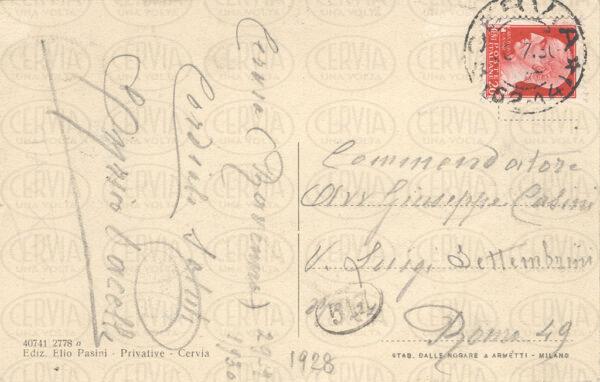 CERVIA
POSTE ITALIANE
Cervia (Ravenna) 29.7.
1930
Cordiali saluti
40741 2778 a
Ediz. Elio Pasini - Privative - Cervia
1928
Commendatore
Avv Giuseppe Casini
V. Luigi Settembrini
Roma 49
STAB. DALLE NOGARE & ARMETTI - MILANO
CERVIA
UNA VOLTA